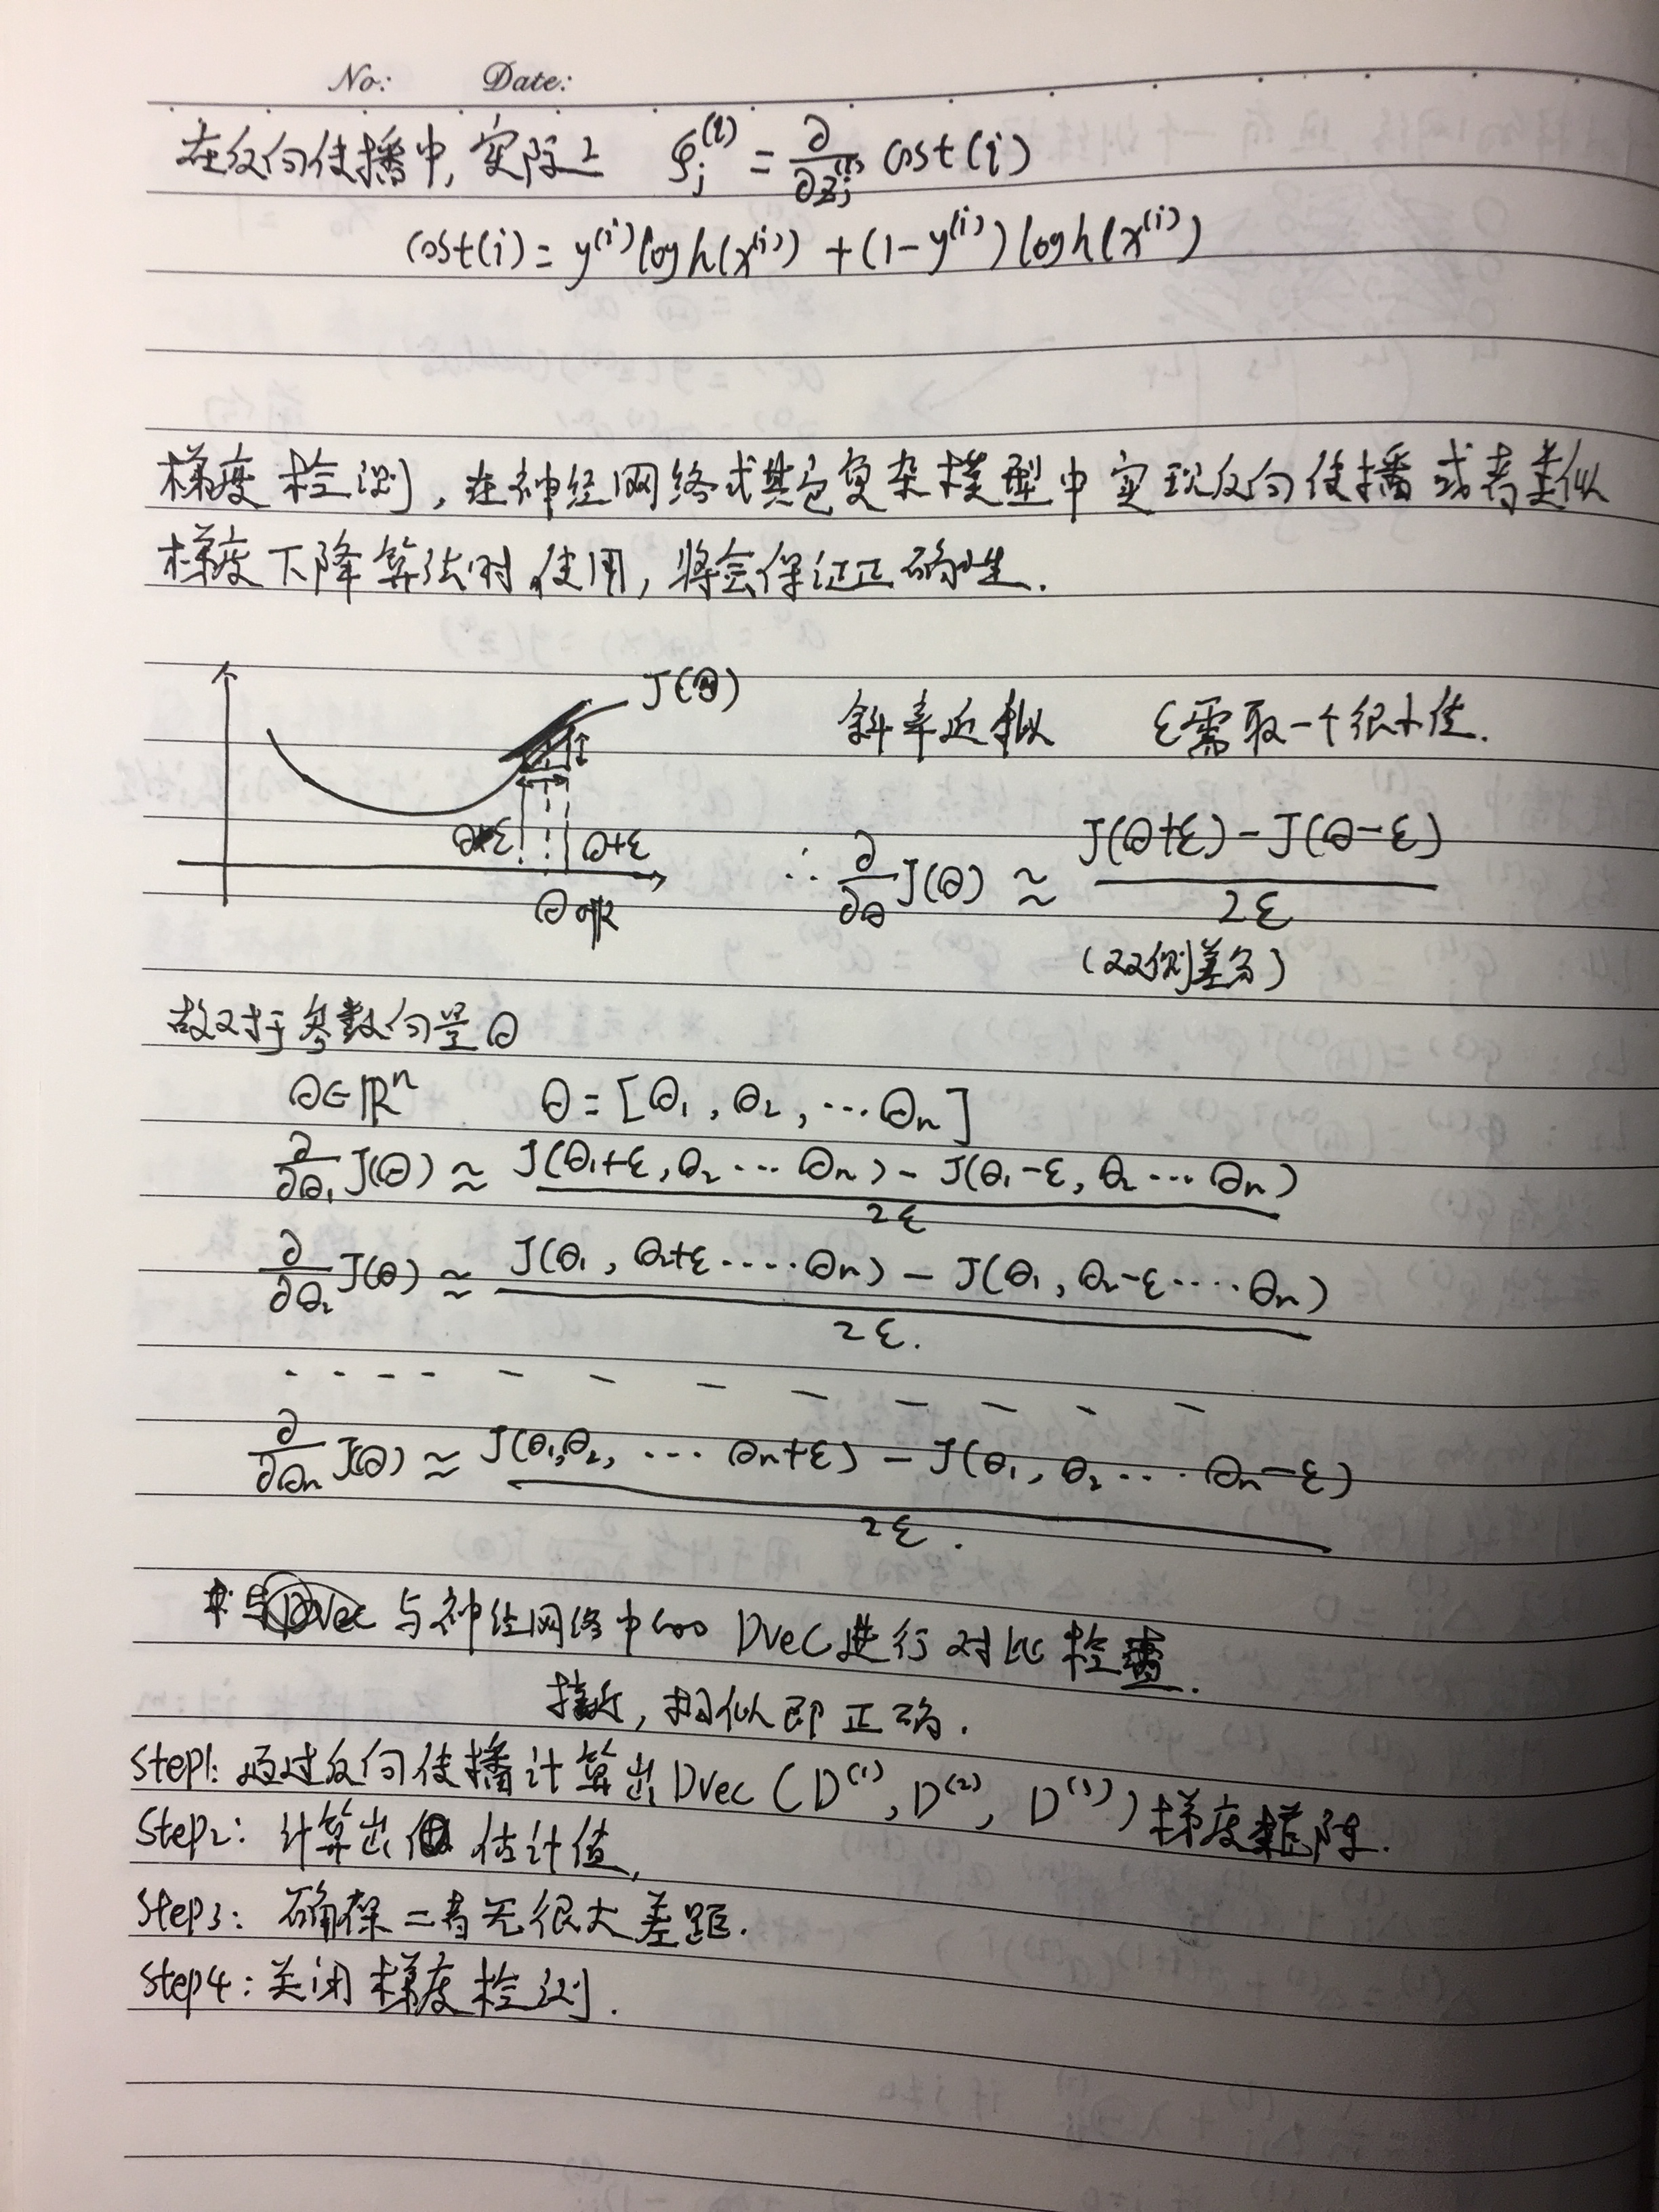 No: Date:
在反向传播中, 实际上 δj^(l) = ∂/∂zj^(l) cost(i)
cost(i) = y^(i) log h(x^(i)) + (1-y^(i)) log h(x^(i))
梯度检测, 在神经网络或其它复杂模型中实现反向传播或者类似
梯度下降算法时使用, 将会保证正确性.
J(θ)
斜率近似 ε需取一个很小值.
θ-ε θ+ε
θ∈ℝ
∴ ∂/∂θ J(θ) ≈ (J(θ+ε) - J(θ-ε)) / 2ε
(双侧差分)
故对于参数向量θ
θ∈ℝ^n θ = [θ1, θ2, ... θn]
∂/∂θ1 J(θ) ≈ (J(θ1+ε, θ2 ... θn) - J(θ1-ε, θ2 ... θn)) / 2ε
∂/∂θ2 J(θ) ≈ (J(θ1, θ2+ε ..... θn) - J(θ1, θ2-ε .... θn)) / 2ε.
∂/∂θn J(θ) ≈ (J(θ1,θ2, ... θn+ε) - J(θ1, θ2 .... θn-ε)) / 2ε.
与神经网络中的 Dvec进行对比检查.
接近, 相似即正确.
Step1: 通过反向传播计算出Dvec (D^(1), D^(2), D^(3)) 梯度矩阵.
Step2: 计算出 估计值,
Step3: 确保二者无很大差距.
Step4: 关闭梯度检测.